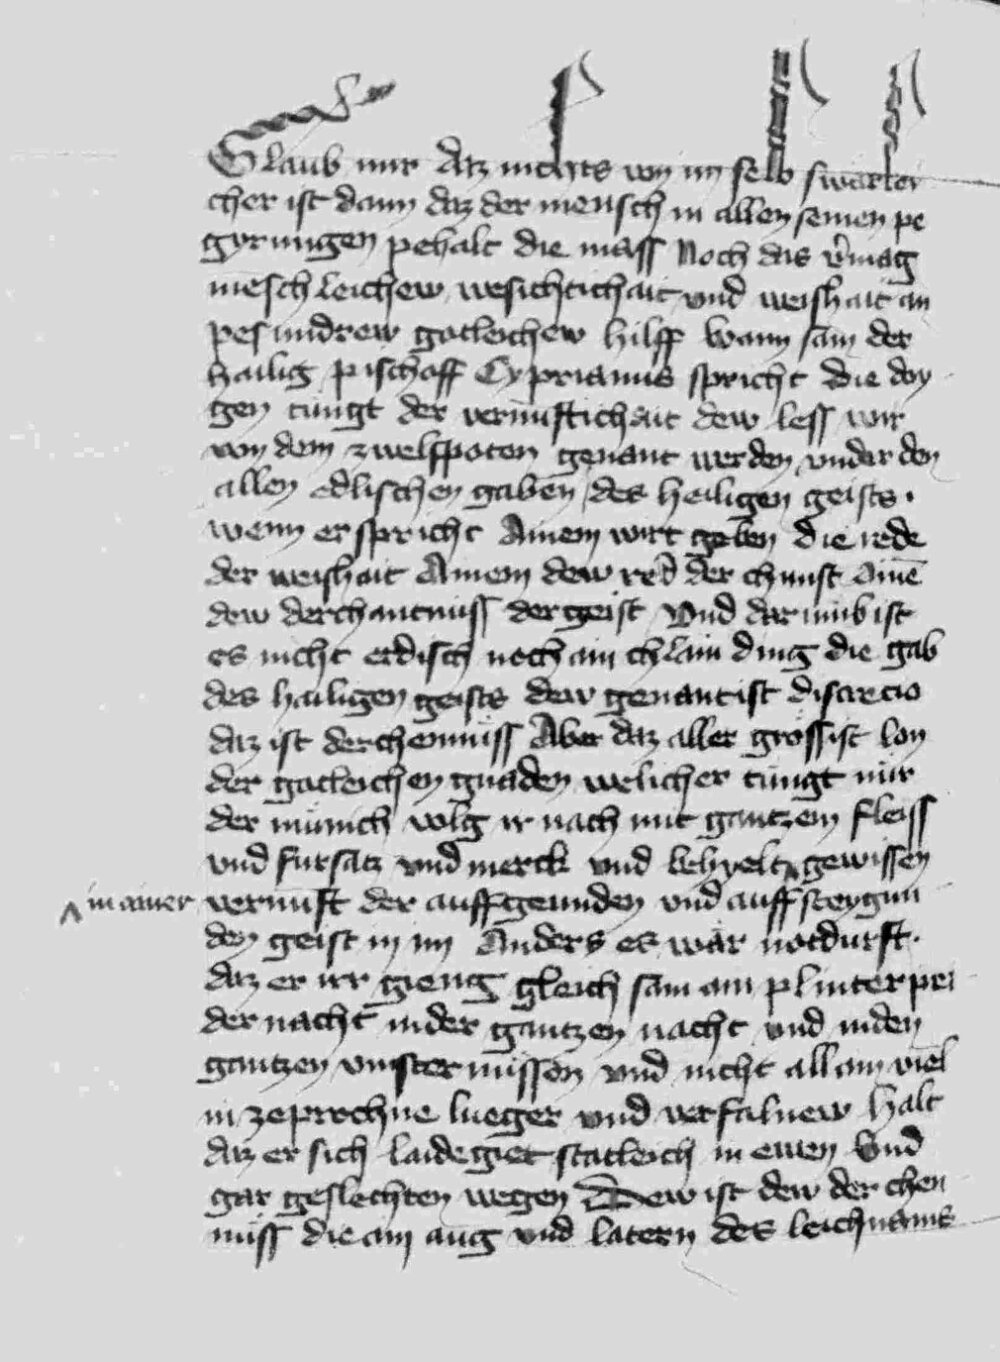 Glaub mir daz nichts von im selb swarlei
cher ist dann daz der mensch in allen seinen pe
gyrungen pehalt die mass Noch das v̉mag
mēschleichew, wesichtichait vnd weishait an
pesundrew gotleichew hilff wann sam der
hailig pischoff Cyprianus spricht die
gen tungt der vernuftichait dew less wir
von dem zwelfpoten genant werden vnder den
allen edlischen gaben des heiligen geists.
wenn er spricht Ainem wirt geben die rede
der weishait Ainem dew red der chunst Ainē
dew derchantnuss der geist Vnd dar umb ist
es nicht erdisch noch ain chlain ding die gab
des hailigen geists dew genant ist discrecio
daz ist derchennuss Aber daz aller grossist lon
der gotleichen gnaden welicher tungt nur
der munich volg ir nach mit gantzem fleiss
vnd fursatz vnd merck vnd behyelt ‸ gewissen
‸ in ainer vernunft der auffgeunden vnd auffsteygun
den geist in im Anders es wär notdurft.
daz er irr gieng gleich sam ain plinter pei
der nacht in der gantzen nacht vnd in den
gantzen vinsternussen vnd nicht allain viel
in zeprochne lueger vnd verfalnew halt
daz er sich laideget statleich in ewen Vnd
gar geslechten wegen Dew ist dew derchen
nuss die ain aug vnd latern des leichnams